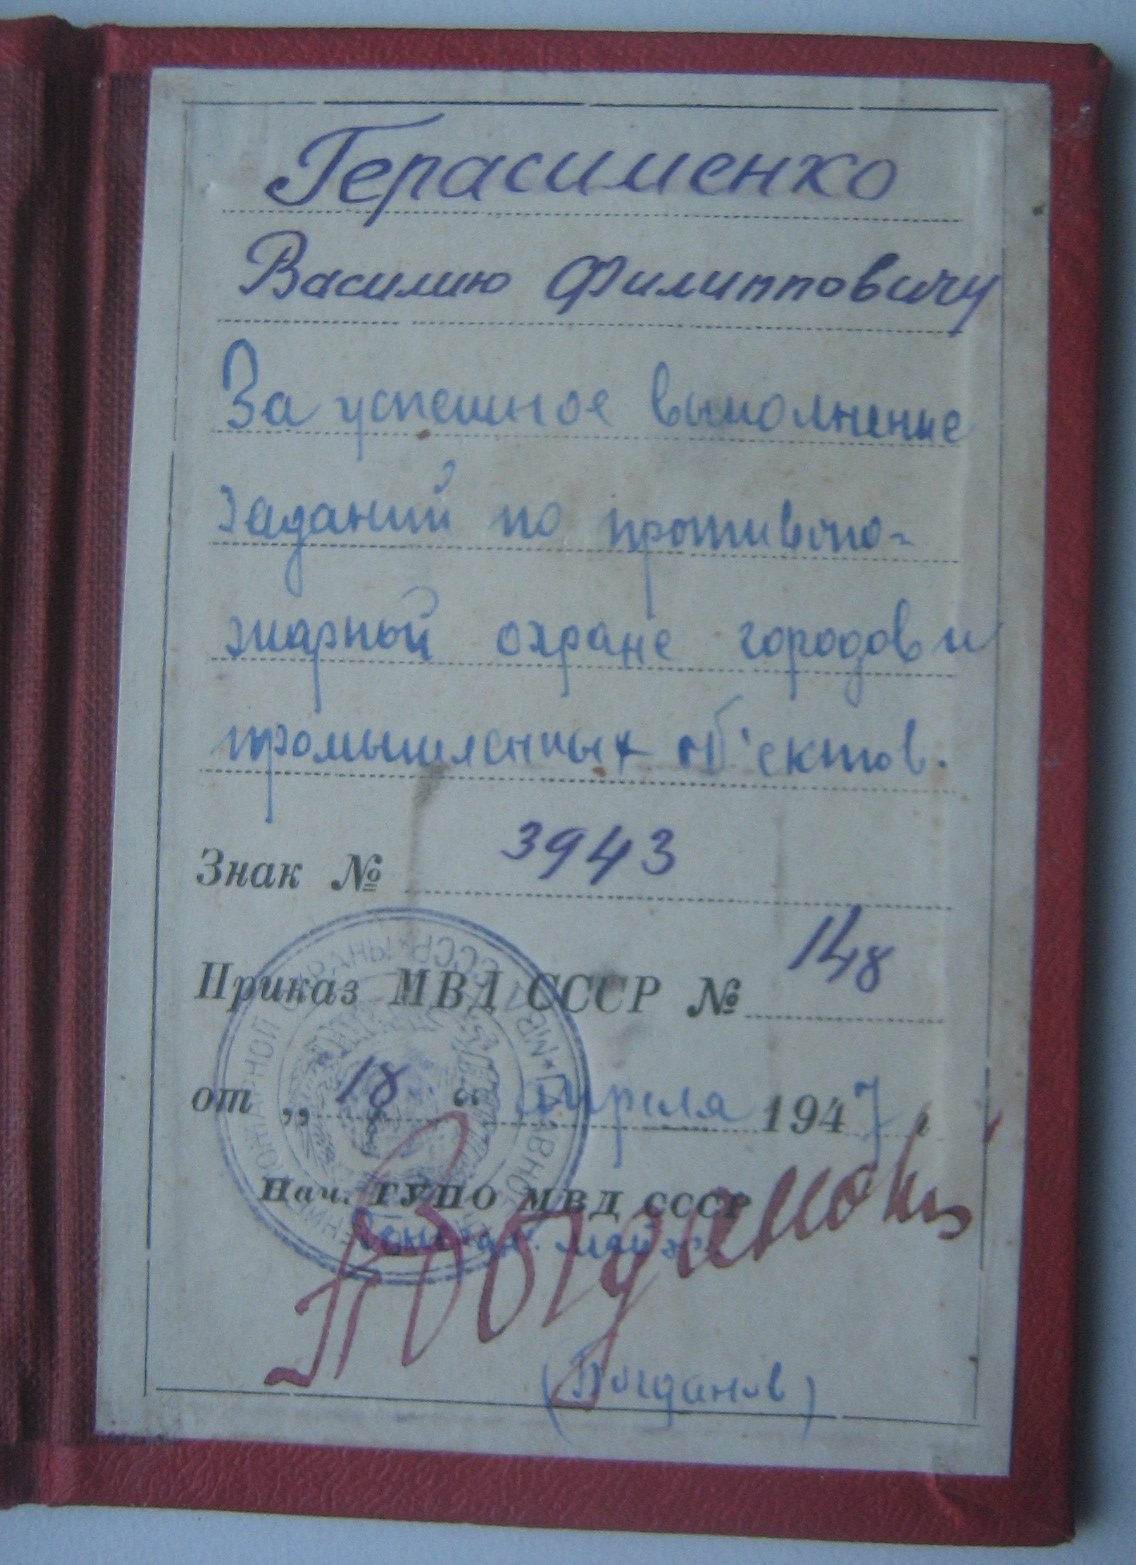 Герасименко
Василию Филипповичу
За успешное выполнение
заданий по противопо-
жарной охране городов и
промышленных об'ектов.
Знак № 3943
Приказ МВД СССР № 148
от „ 18 “ апреля 1947
Нач. ГУПО МВД СССР
Богданов
(Богданов)